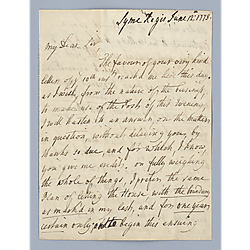 Lyme Regis June 12th 1778.
My Dear Sir
The favour of your very kind
letter of 10th inst reach'd us here this day,
as I wish, from the nature of the business,
to make use of the Post of this evening,
I will hasten to an answer, on the matter
in question, without delaying your by
thanks so due, and for which I know
you give me credit; on fully weighing
the whole of things, I prefer the same
Plan of living the House with the
as mark'd in my last, and for one year
certain only to begin this ensuing